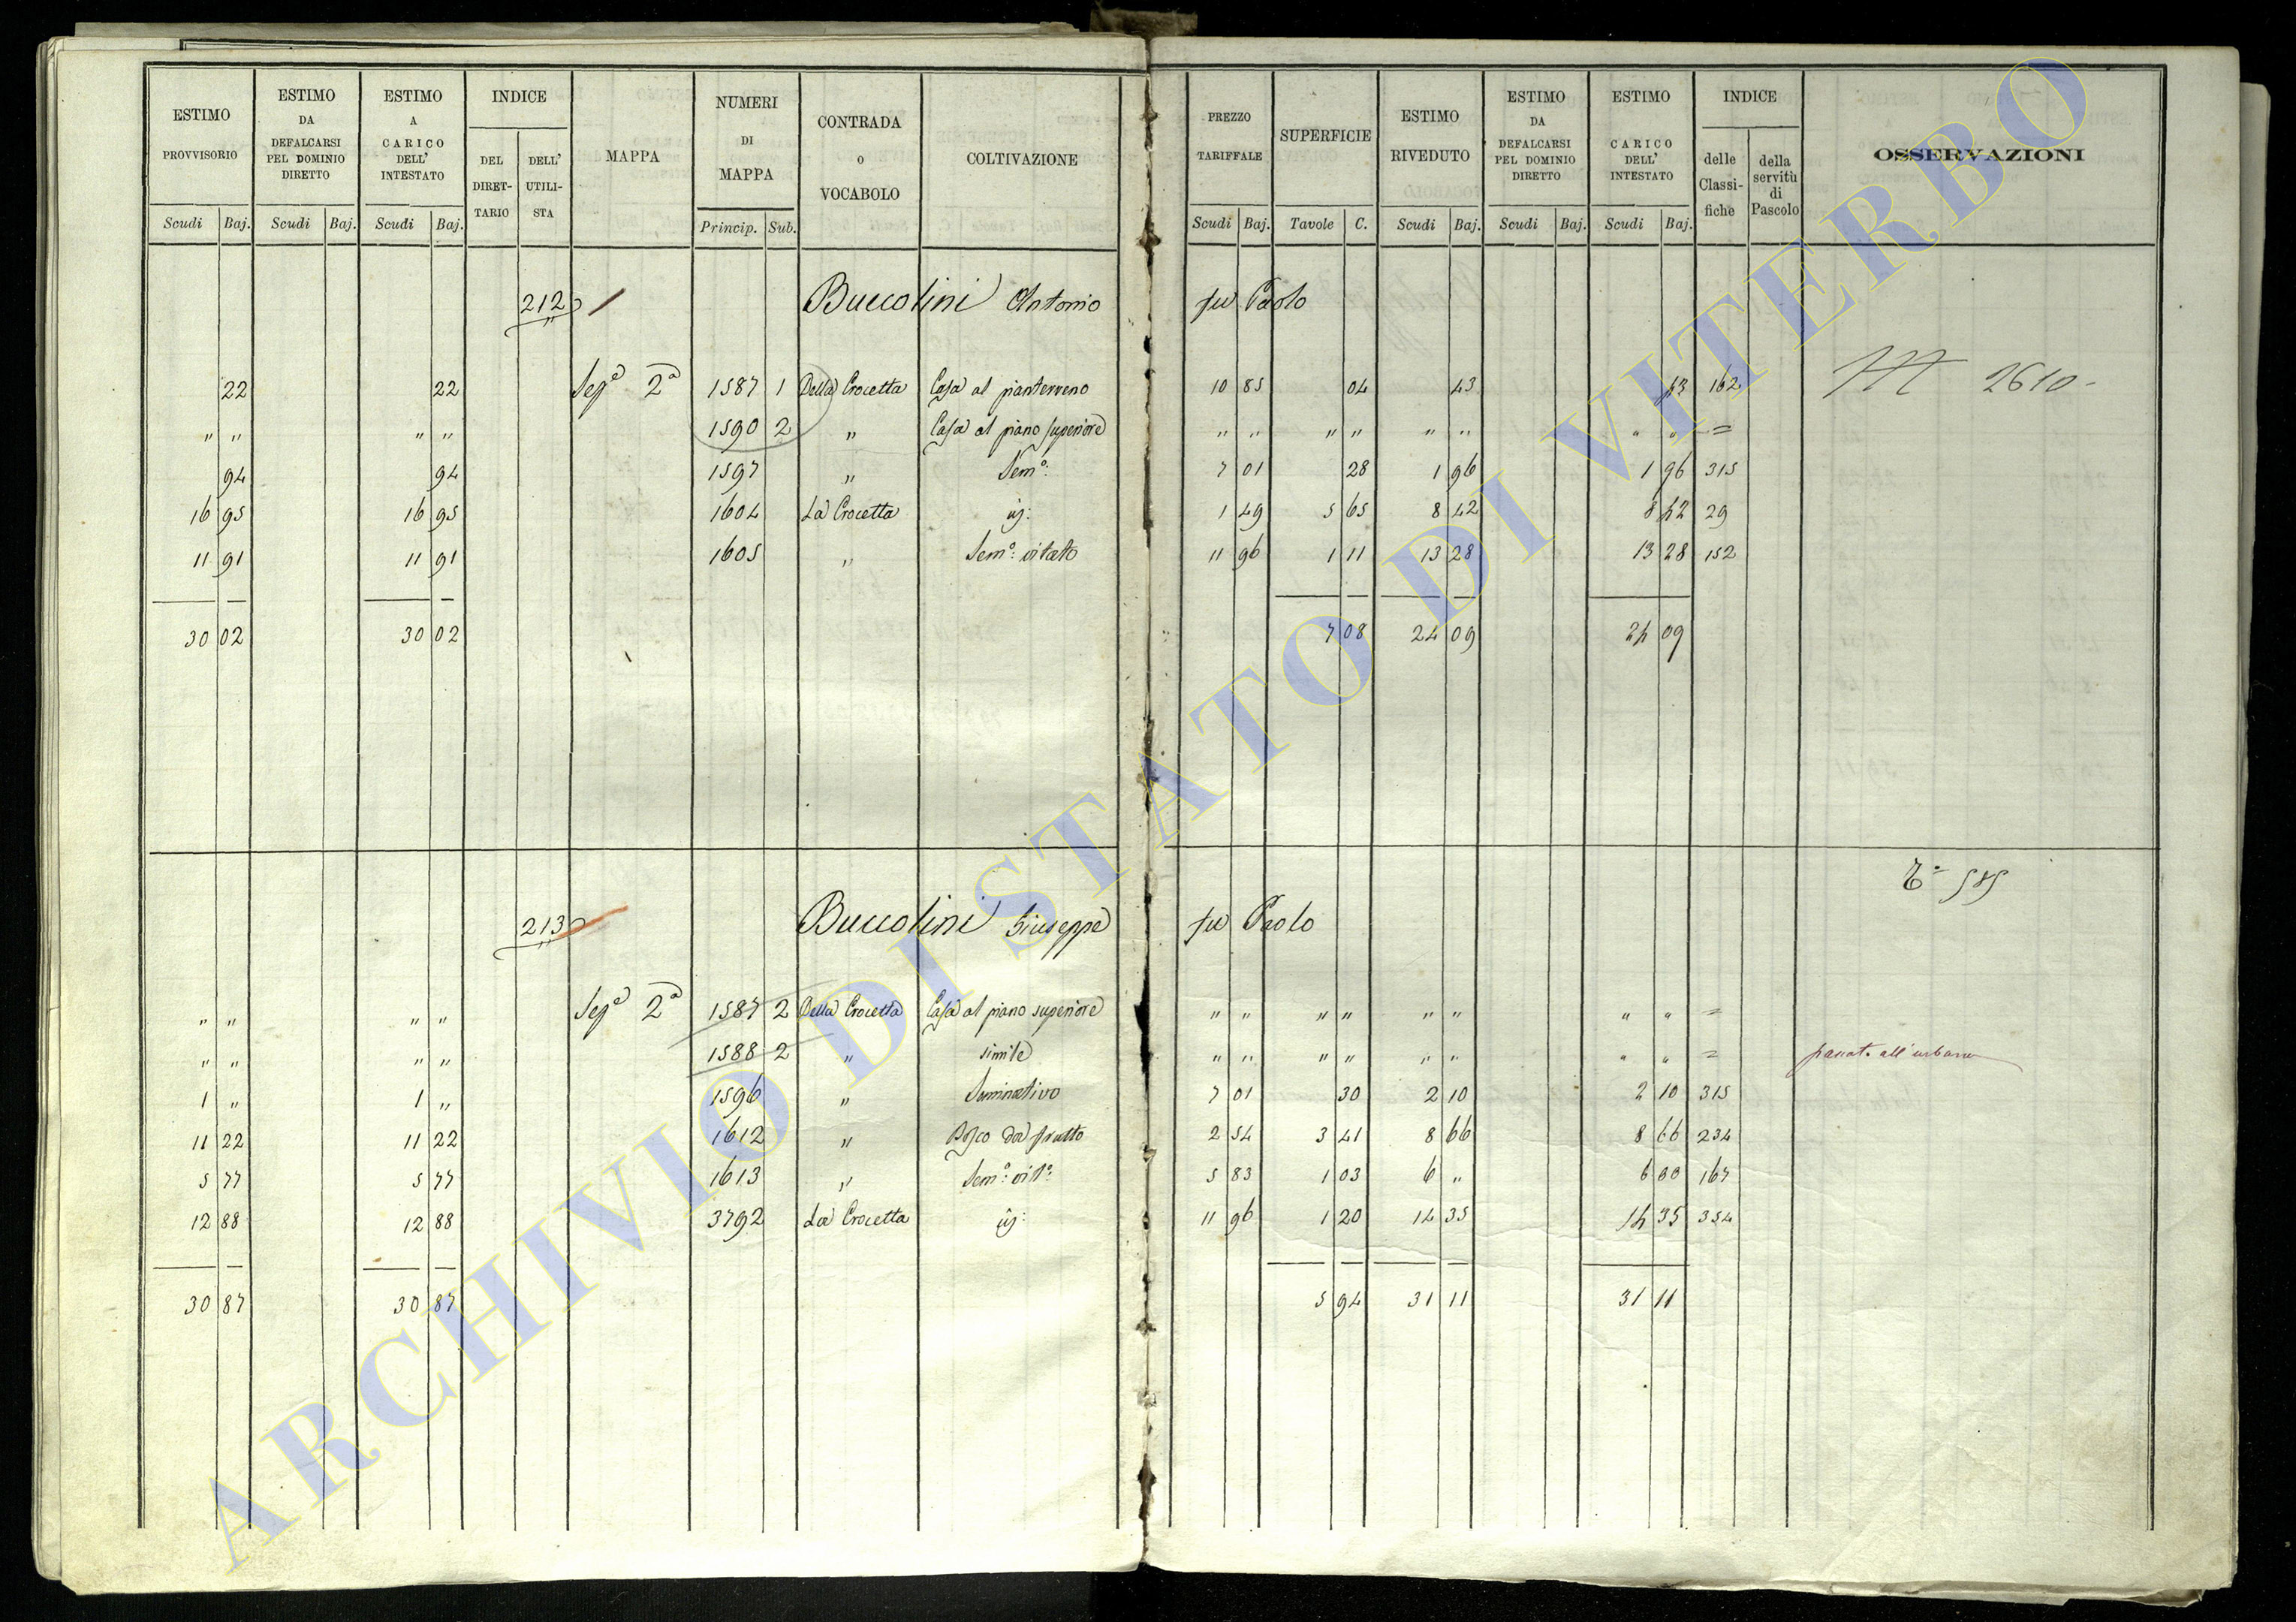 ESTIMO PROVVISORIO
ESTIMO DA DEFALCARSI PEL DOMINIO DIRETTO
ESTIMO A CARICO DELL' INTESTATO
INDICE
DEL DIRETTARIO
DELL' UTILISTA
MAPPA
NUMERI DI MAPPA
CONTRADA O VOCABOLO
COLTIVAZIONE
PREZZO TARIFFALE
SUPERFICIE
ESTIMO RIVEDUTO
ESTIMO DA DEFALCARSI PEL DOMINIO DIRETTO
ESTIMO CARICO DELL' INTESTATO
INDICE
delle Classifiche
della servitù di Pascolo
OSSERVAZIONI
Scudi Baj. Scudi Baj. Scudi Baj. Princip. Sub. Scudi Baj. Tavole C. Scudi Baj. Scudi Baj. Scudi Baj.
212 Buccolini Antonio fu Paolo
22 22 Sez.a 2a 1587 1 Della Crocetta Casa al pianterreno 10 85 04 43 43 162 2610
" " " " 1590 2 " Casa al piano superiore " " " " " " " " =
94 94 1597 " Sem.o 7 01 28 1 96 1 96 315
16 95 16 95 1604 La Crocetta 1 49 5 65 8 42 8 42 29
11 91 11 91 1605 " Sem.o vitato 11 96 1 11 13 28 13 28 152
30 02 30 02 7 08 24 09 24 09
213 Buccolini Giuseppe fu Paolo
" " " " Sez.a 2a 1587 2 Della Crocetta Casa al piano superiore " " " " " " " " =
" " " " 1588 2 " simile " " " " " " " " = passato all'urbano
1 " 1 " 1596 " Seminativo 7 01 30 2 10 2 10 315
11 22 11 22 1612 " Bosco da frutto 2 54 3 41 8 66 8 66 234
5 77 5 77 1613 " Sem.o vit.o 5 83 1 03 6 " 6 00 167
12 88 12 88 3792 La Crocetta 11 96 1 20 14 35 14 35 354
30 87 30 87 5 94 31 11 31 11
ARCHIVIO DI STATO DI VITERBO